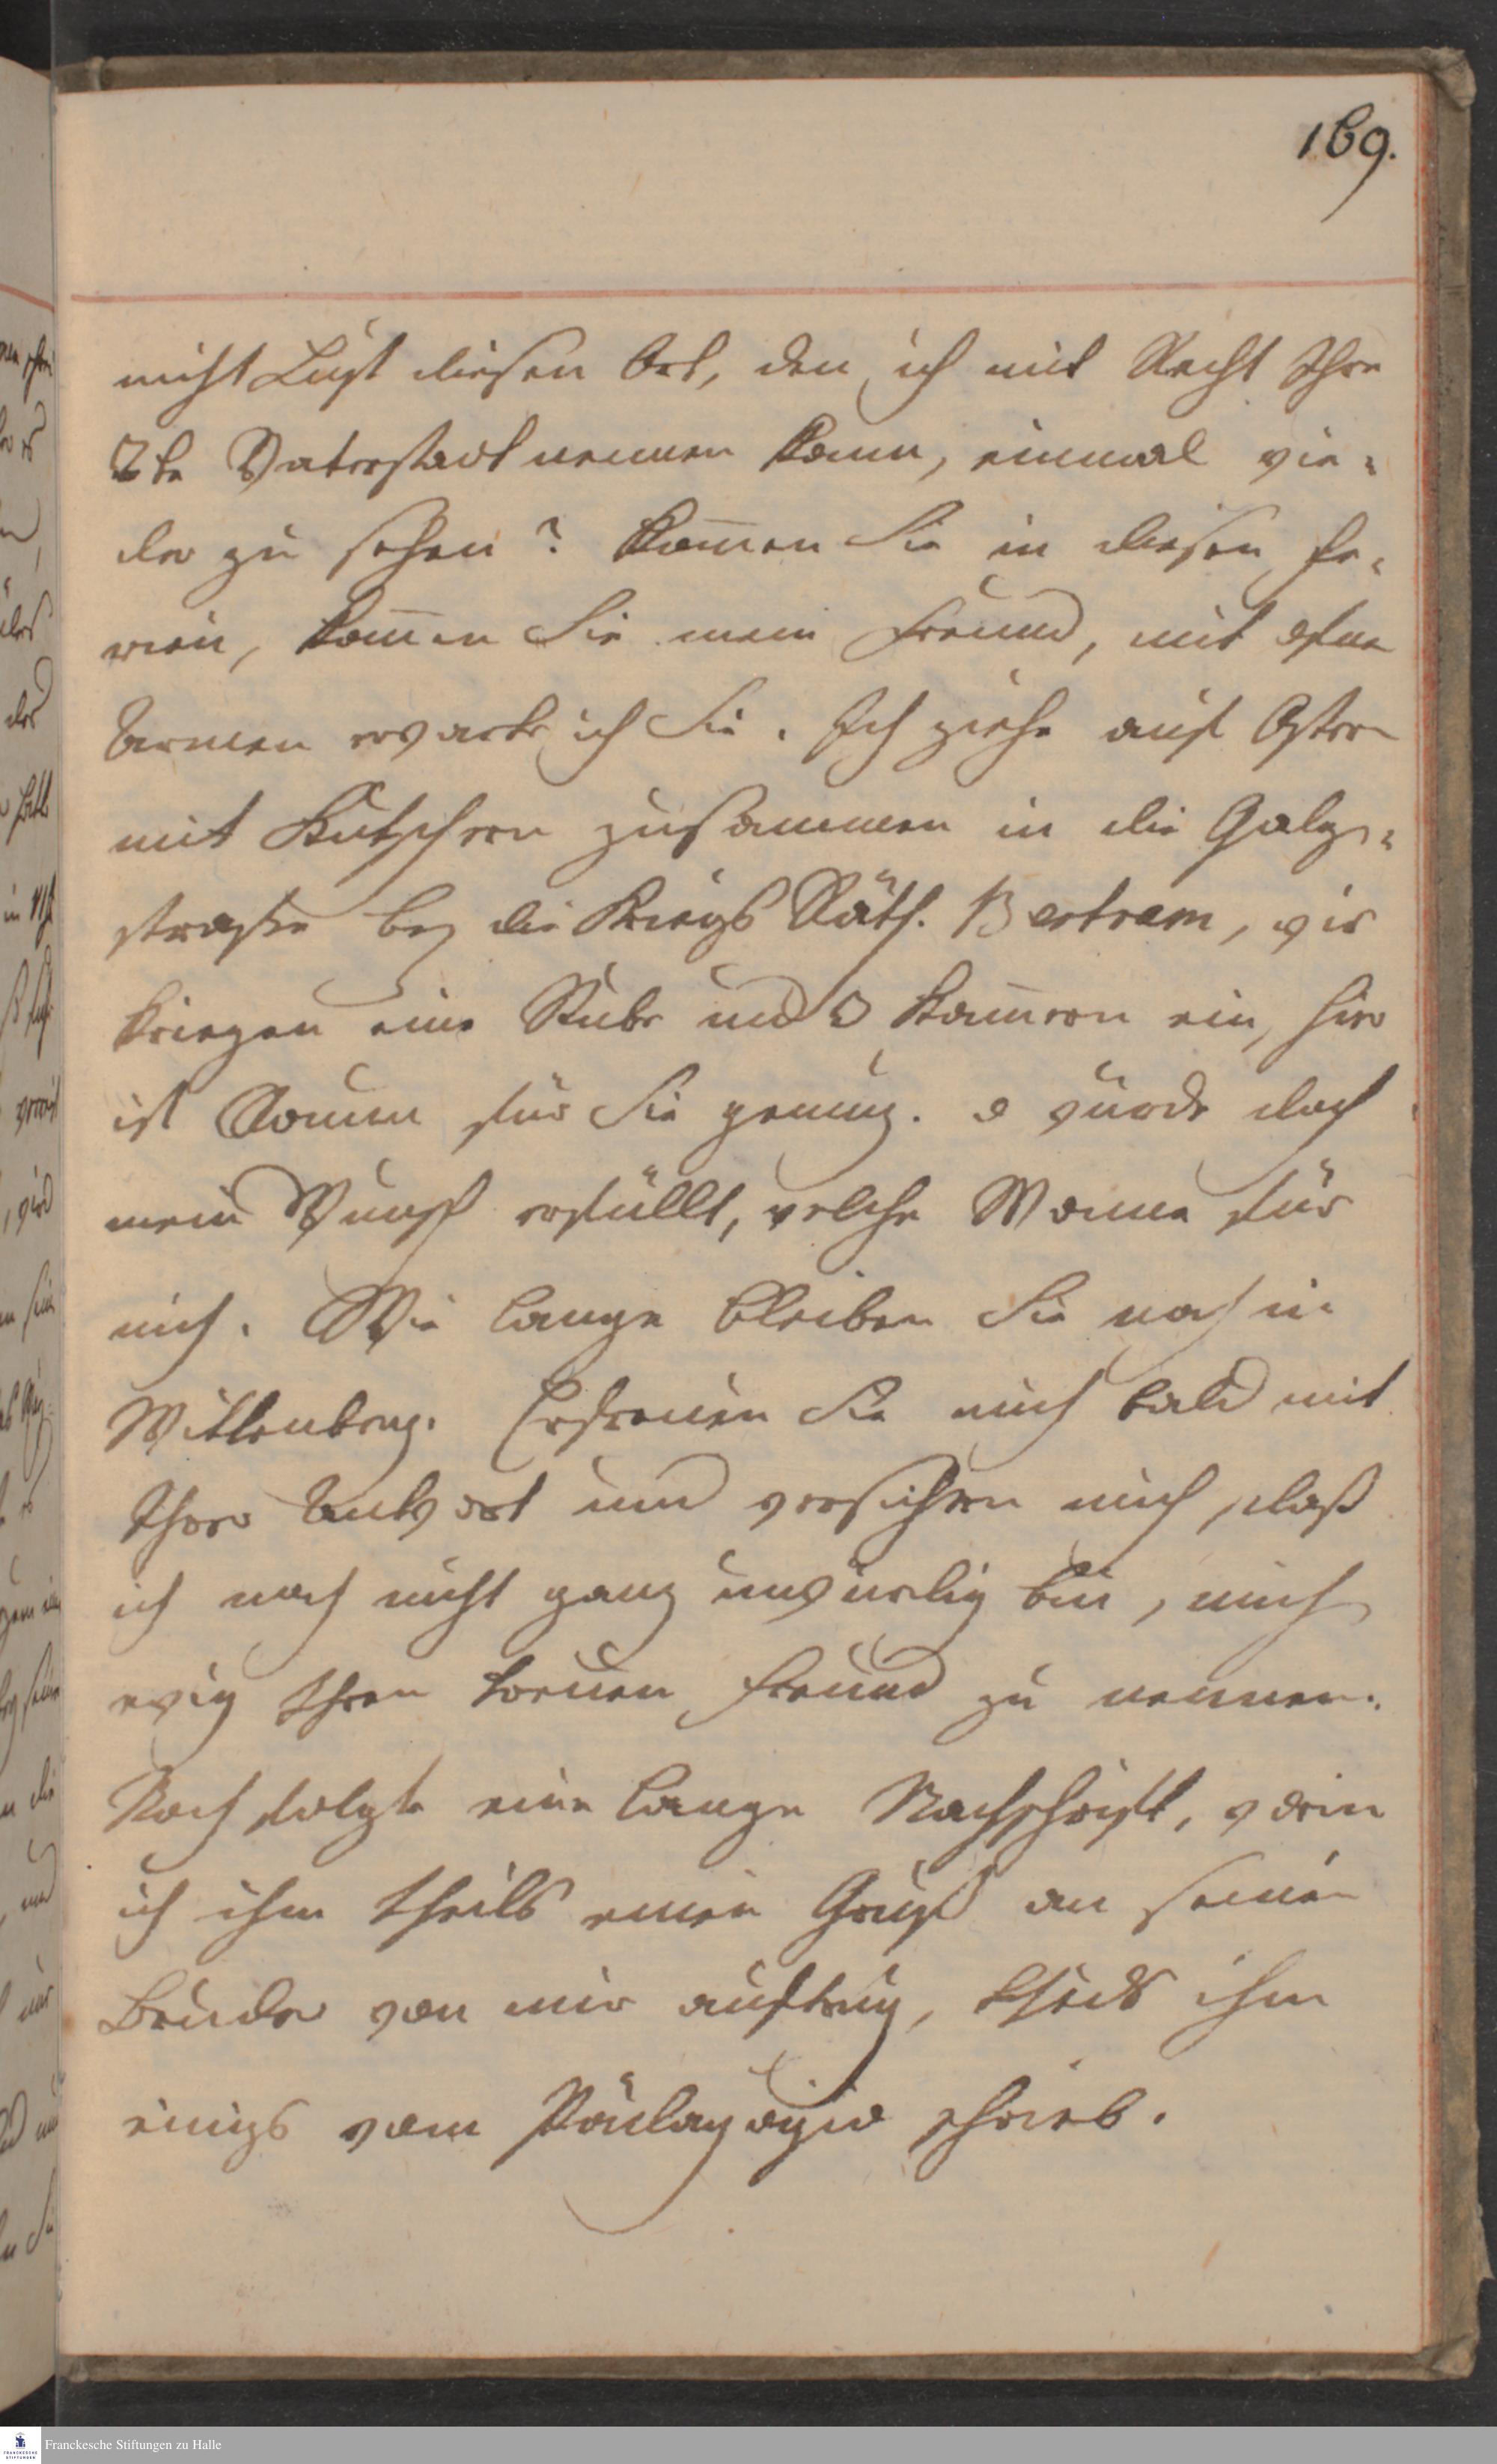 169.
nicht Lust diesen Ort, den ich mit Recht Ihre
2te Vaterstadt nennen kann, einmal wie-
der zu sehen? Kom̅en Sie in diesen Fe-
rien, kom̅en Sie mein Freund, mit ofnen
Armen erwarte ich Sie. Ich ziehe auf Ostern
mit Kutschern zusammen in die Galg-
straße bey die Kriegs Räth. Bertram, wir
kriegen eine Stube und 3 Kam̅ern ein, hier
ist Raum für Sie genung. o würde doch
mein Wunsch erfüllt, welche Wonne für
mich. Wie lange bleiben Sie noch in
Wittenberg. Erfreuen Sie mich bald mit
Ihrer Antwort und versichern mich, daß
ich noch nicht ganz unwürdig bin, mich
ewig Ihren treuen Freund zu nennen.
Noch folgte eine lange Nachschrift, worin
ich ihm theils einen Gruß an seinen
Bruder von mir auftrug, theils ihm
einigs vom Pädagogio schrieb.
Franckesche Stiftungen zu Halle